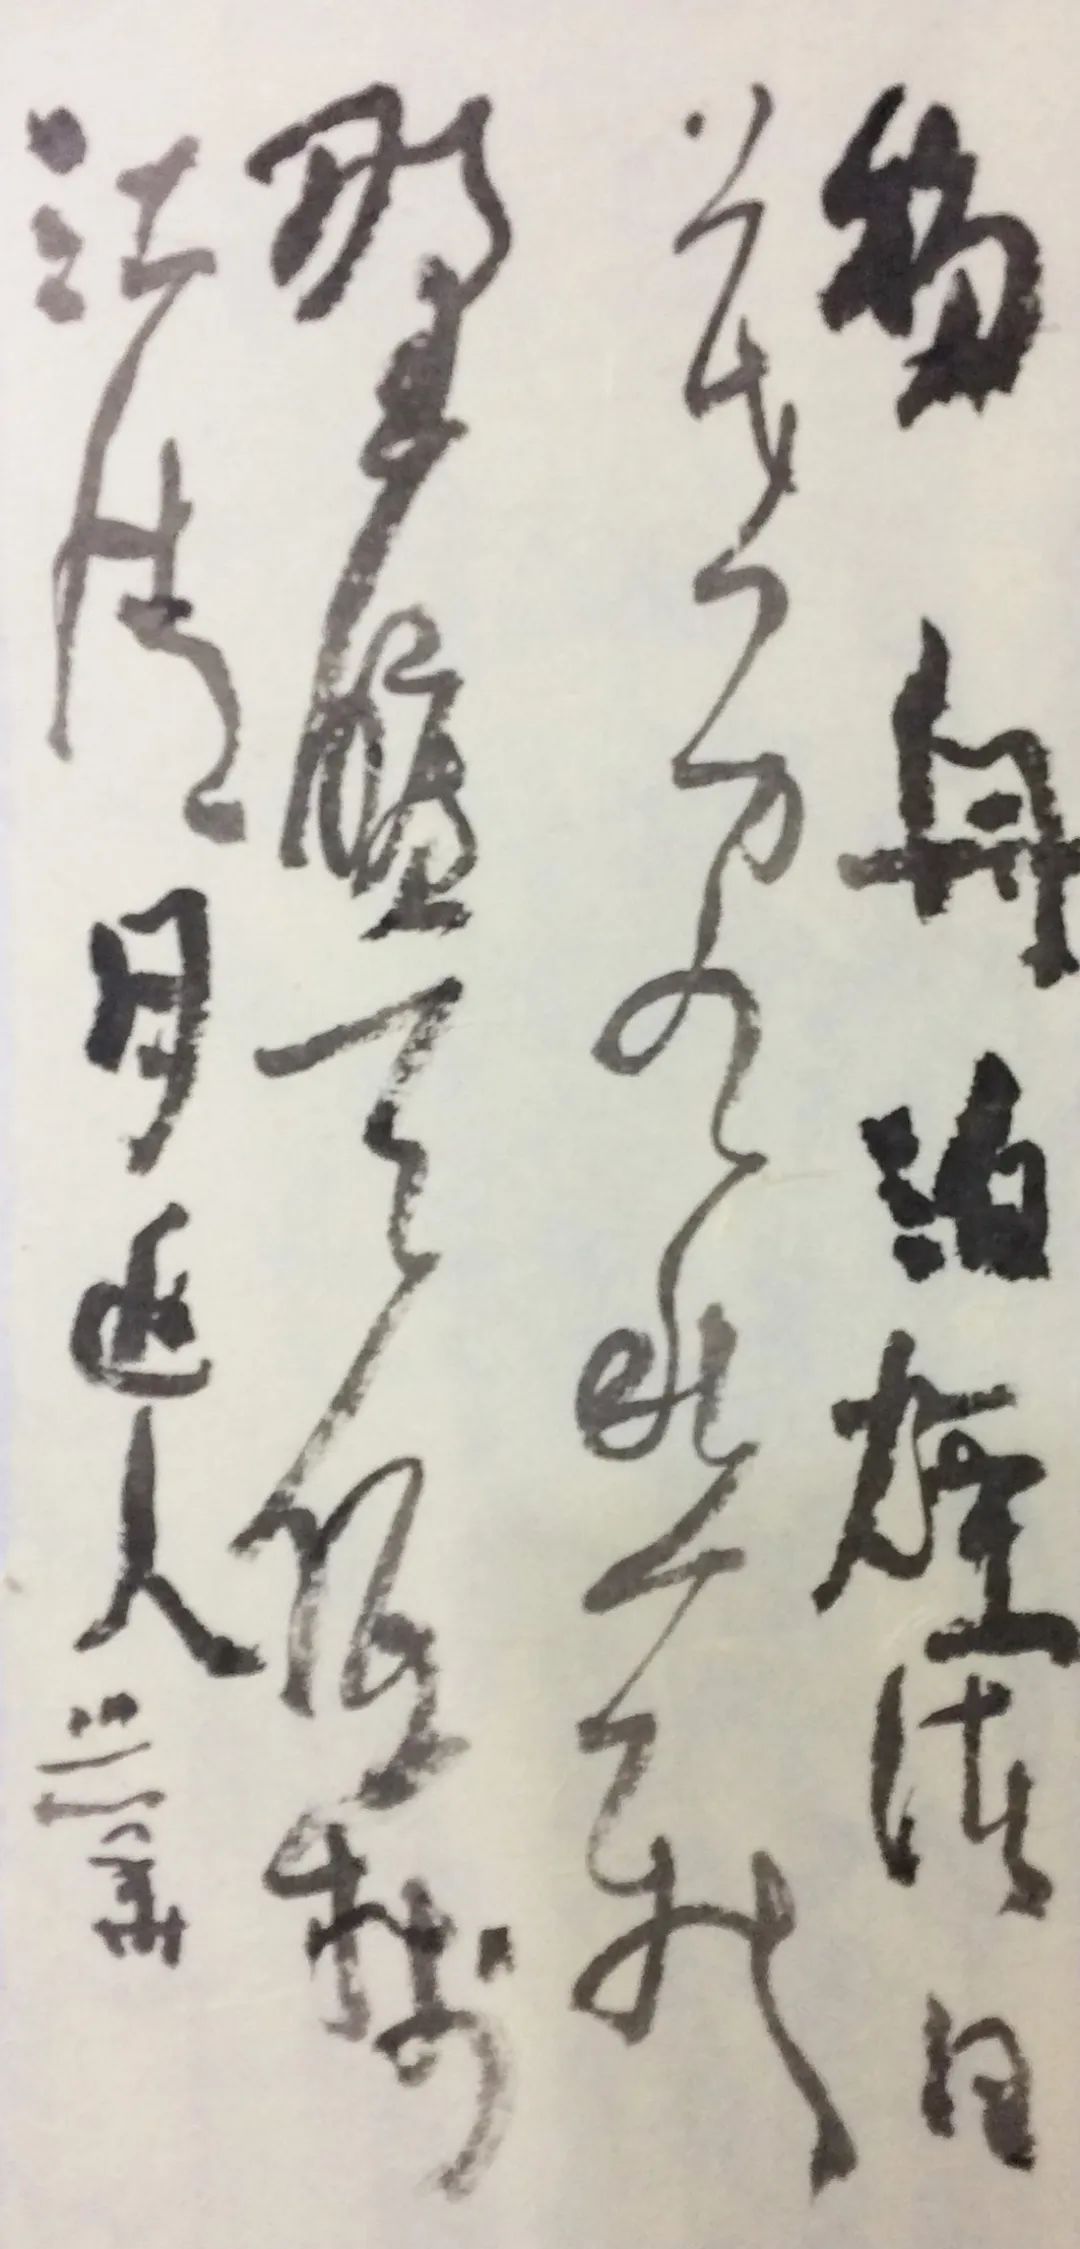 移舟泊煙渚日
暮客愁新
野曠天低樹
江清月近人